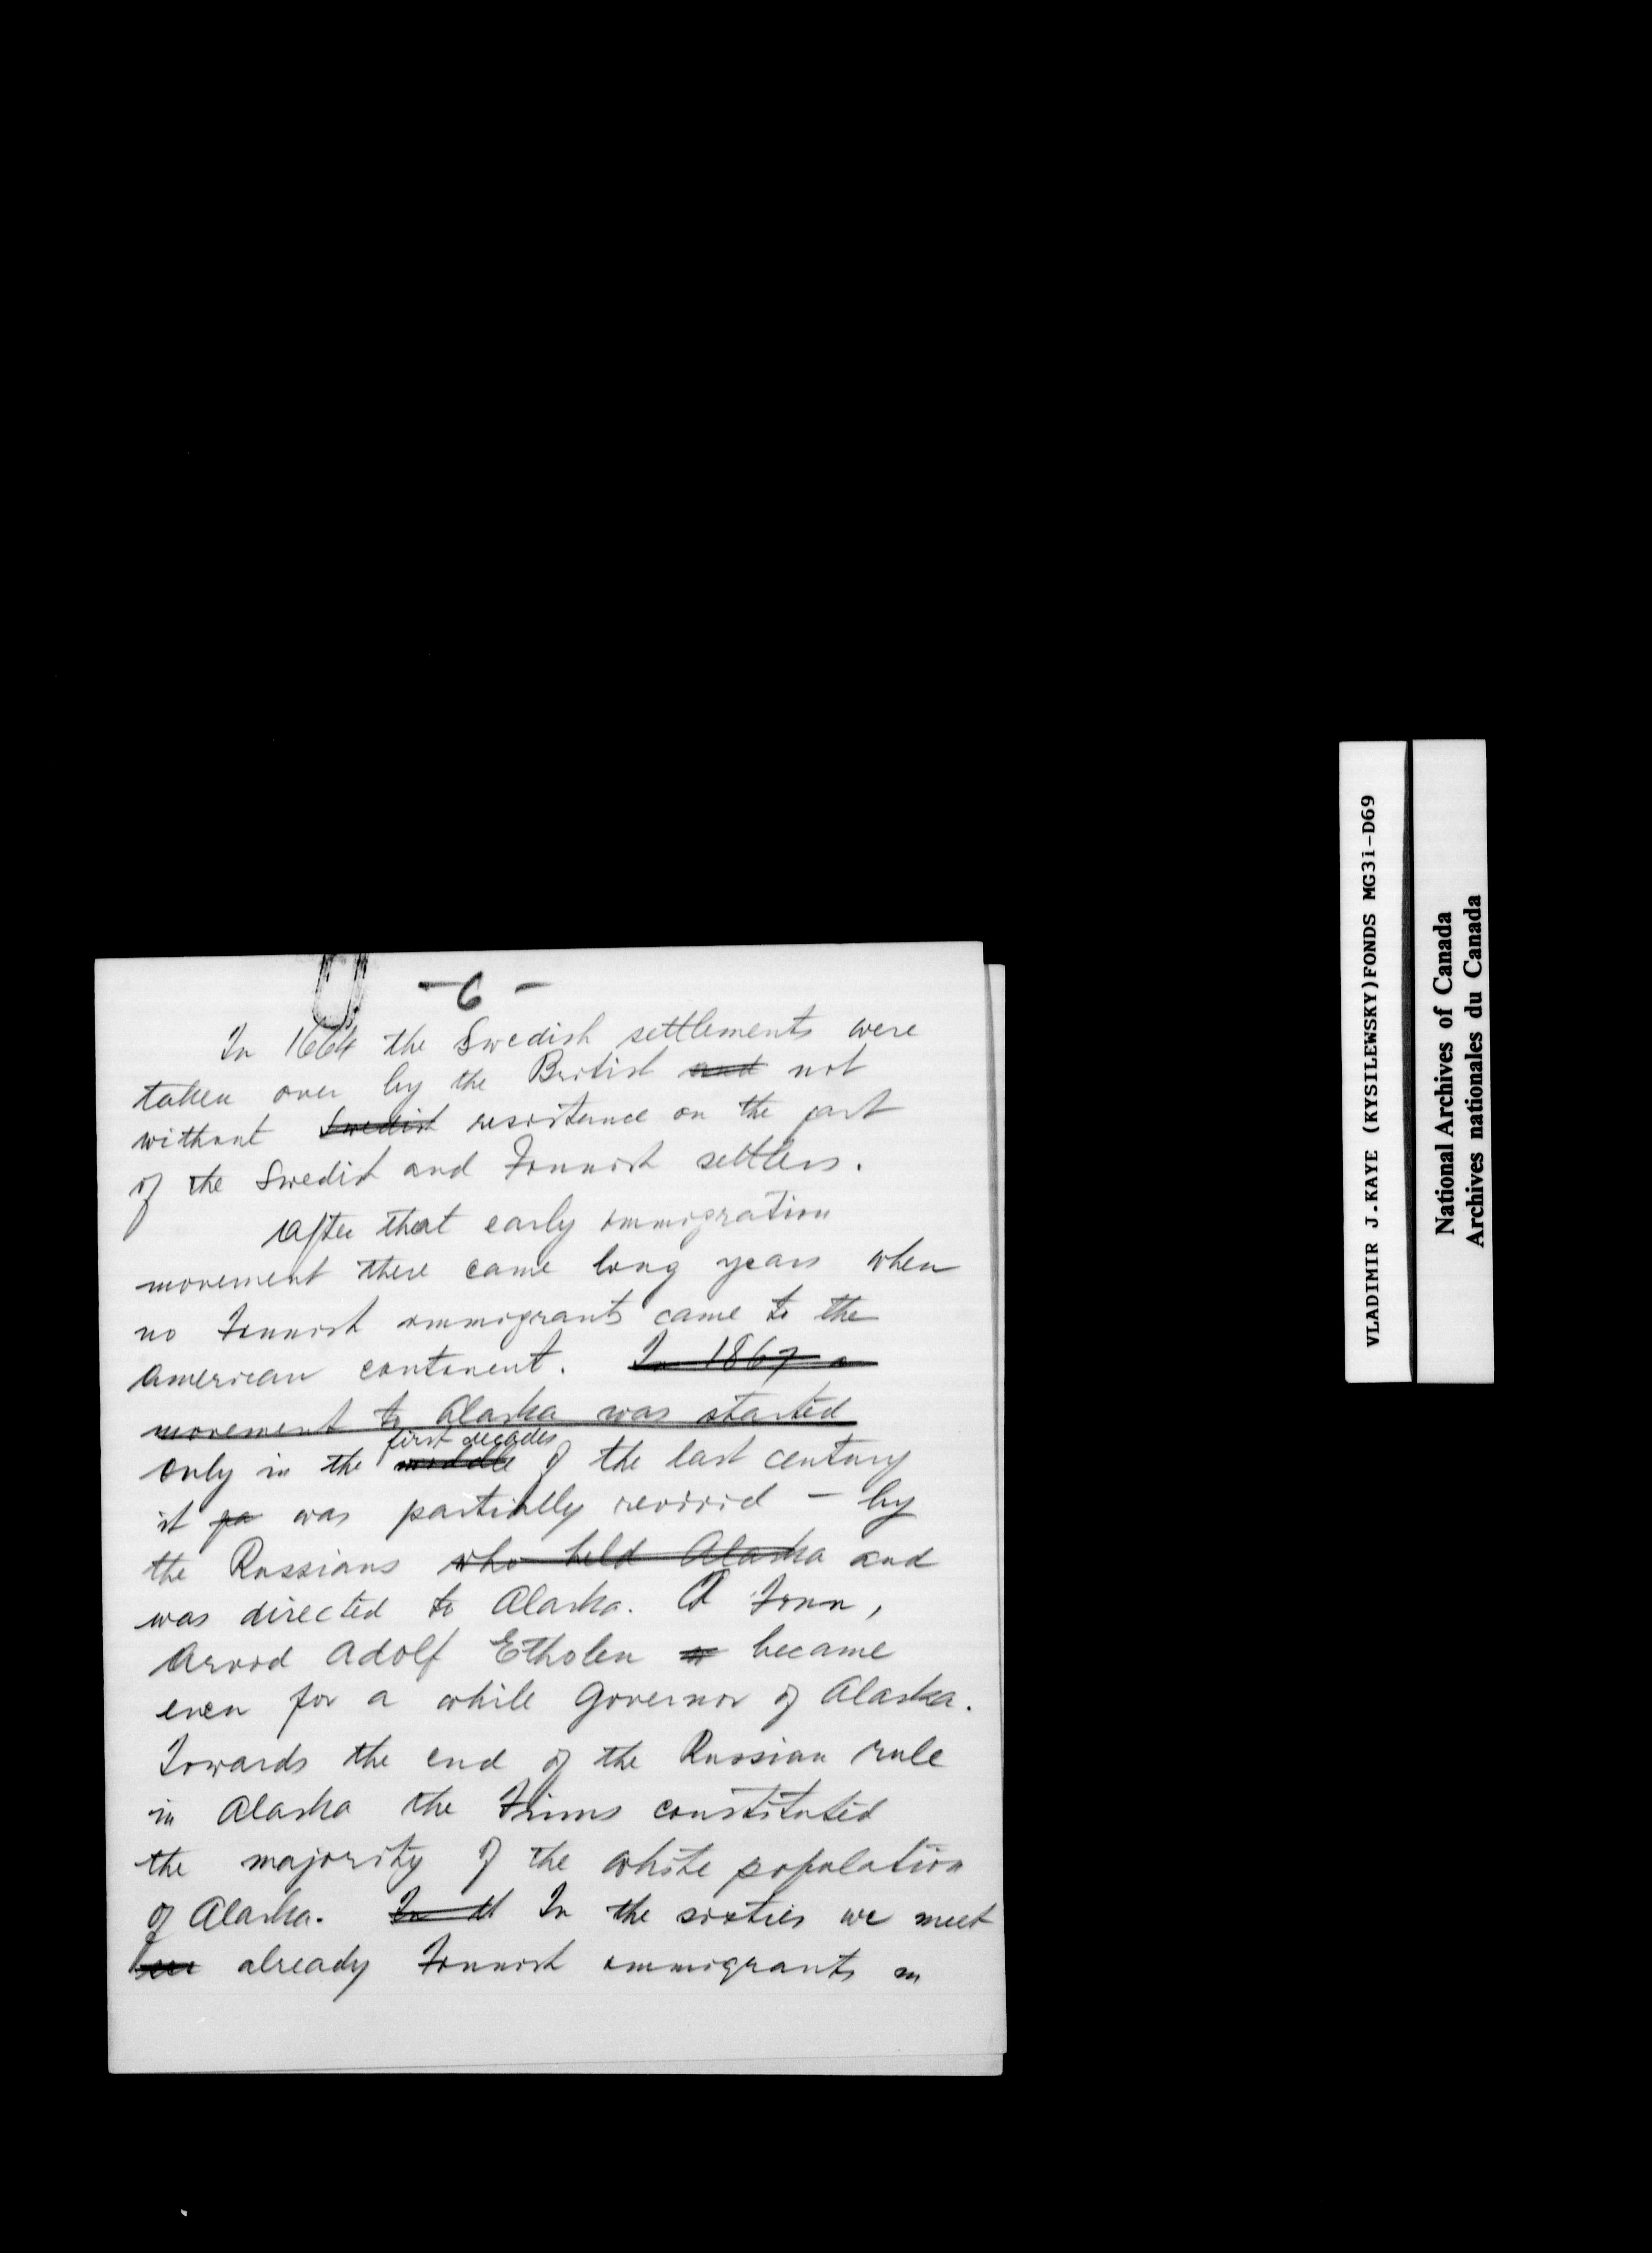 - 6 -
In 1664 the Swedish settlements were
taken over by the British and not
without Swedish resistance on the part
of the Swedish and Finnish settlers.
After that early immigration
movement there came long years when
no Finnish immigrants came to the
American continent. In 1867 a
movement to Alaska was started
first decades
only in the middle of the last century
it pa was partially revived - by
the Russians who held Alaska and
was directed to Alaska. A Finn,
Arvid Adolf Etholen became
even for a while Governor of Alaska.
Towards the end of the Russian rule
in Alaska the Finns constituted
the majority of the white population
of Alaska. In th In the sixties we meet
already Finnish immigrants in
VLADIMIR J.KAYE (KYSILEWSKY)FONDS MG31-D69
National Archives of Canada
Archives nationales du Canada